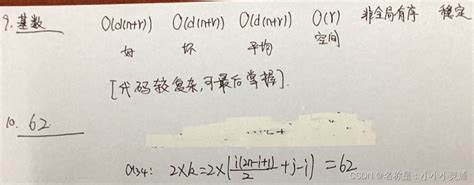 9. 基数 O(d(n+r)) O(d(n+r)) O(d(n+r)) O(r) 非全局有序 稳定
好 坏 平均 空间
[代码较复杂,可最后掌握].
10. 62
a34: 2×k=2×(i(2n-i+1)/2+j-i)=62
CSDN @名称是:小小小灵通